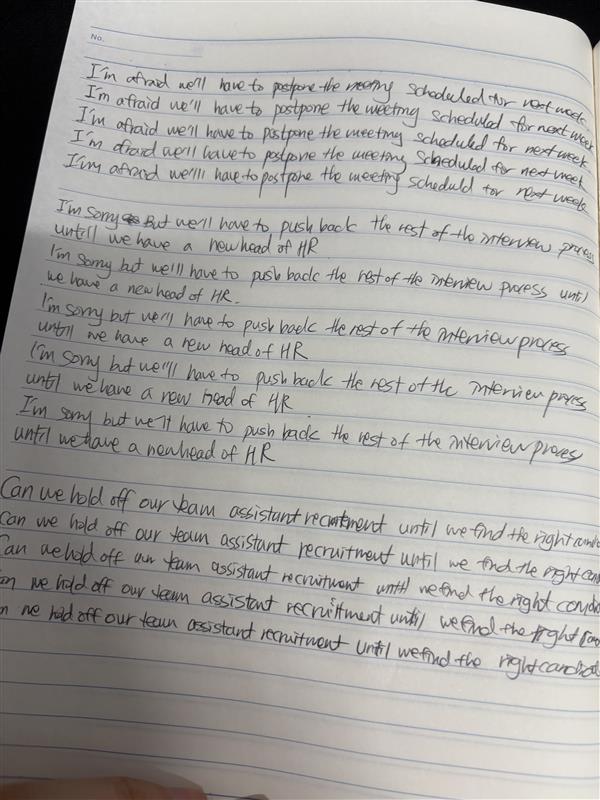 No.
I'm afraid we'll have to postpone the meeting scheduled for next week
I'm afraid we'll have to postpone the meeting scheduled for next week
I'm afraid we'll have to postpone the meeting scheduled for next week
I'm afraid we'll have to postpone the meeting scheduled for next week
I'm afraid we'll have to postpone the meeting scheduld for next week
I'm sorry But we'll have to push back the rest of the interview process
untill we have a new head of HR
I'm sorry but we'll have to push back the rest of the interview process until
we have a new head of HR.
I'm sorry but we'll have to push back the rest of the interview process
until we have a new head of HR
I'm sorry but we'll have to push back the rest of the interview process
until we have a new head of HR
I'm sorry but we'll have to push back the rest of the interview process
until we have a new head of HR
Can we hold off our team assistant recruitment until we find the right
Can we hold off our team assistant recruitment until we find the right
Can we hold off our team assistant recruitment until we find the right
we hold off our team assistant recruitment until we find the right
we hold off our team assistant recruitment until we find the right